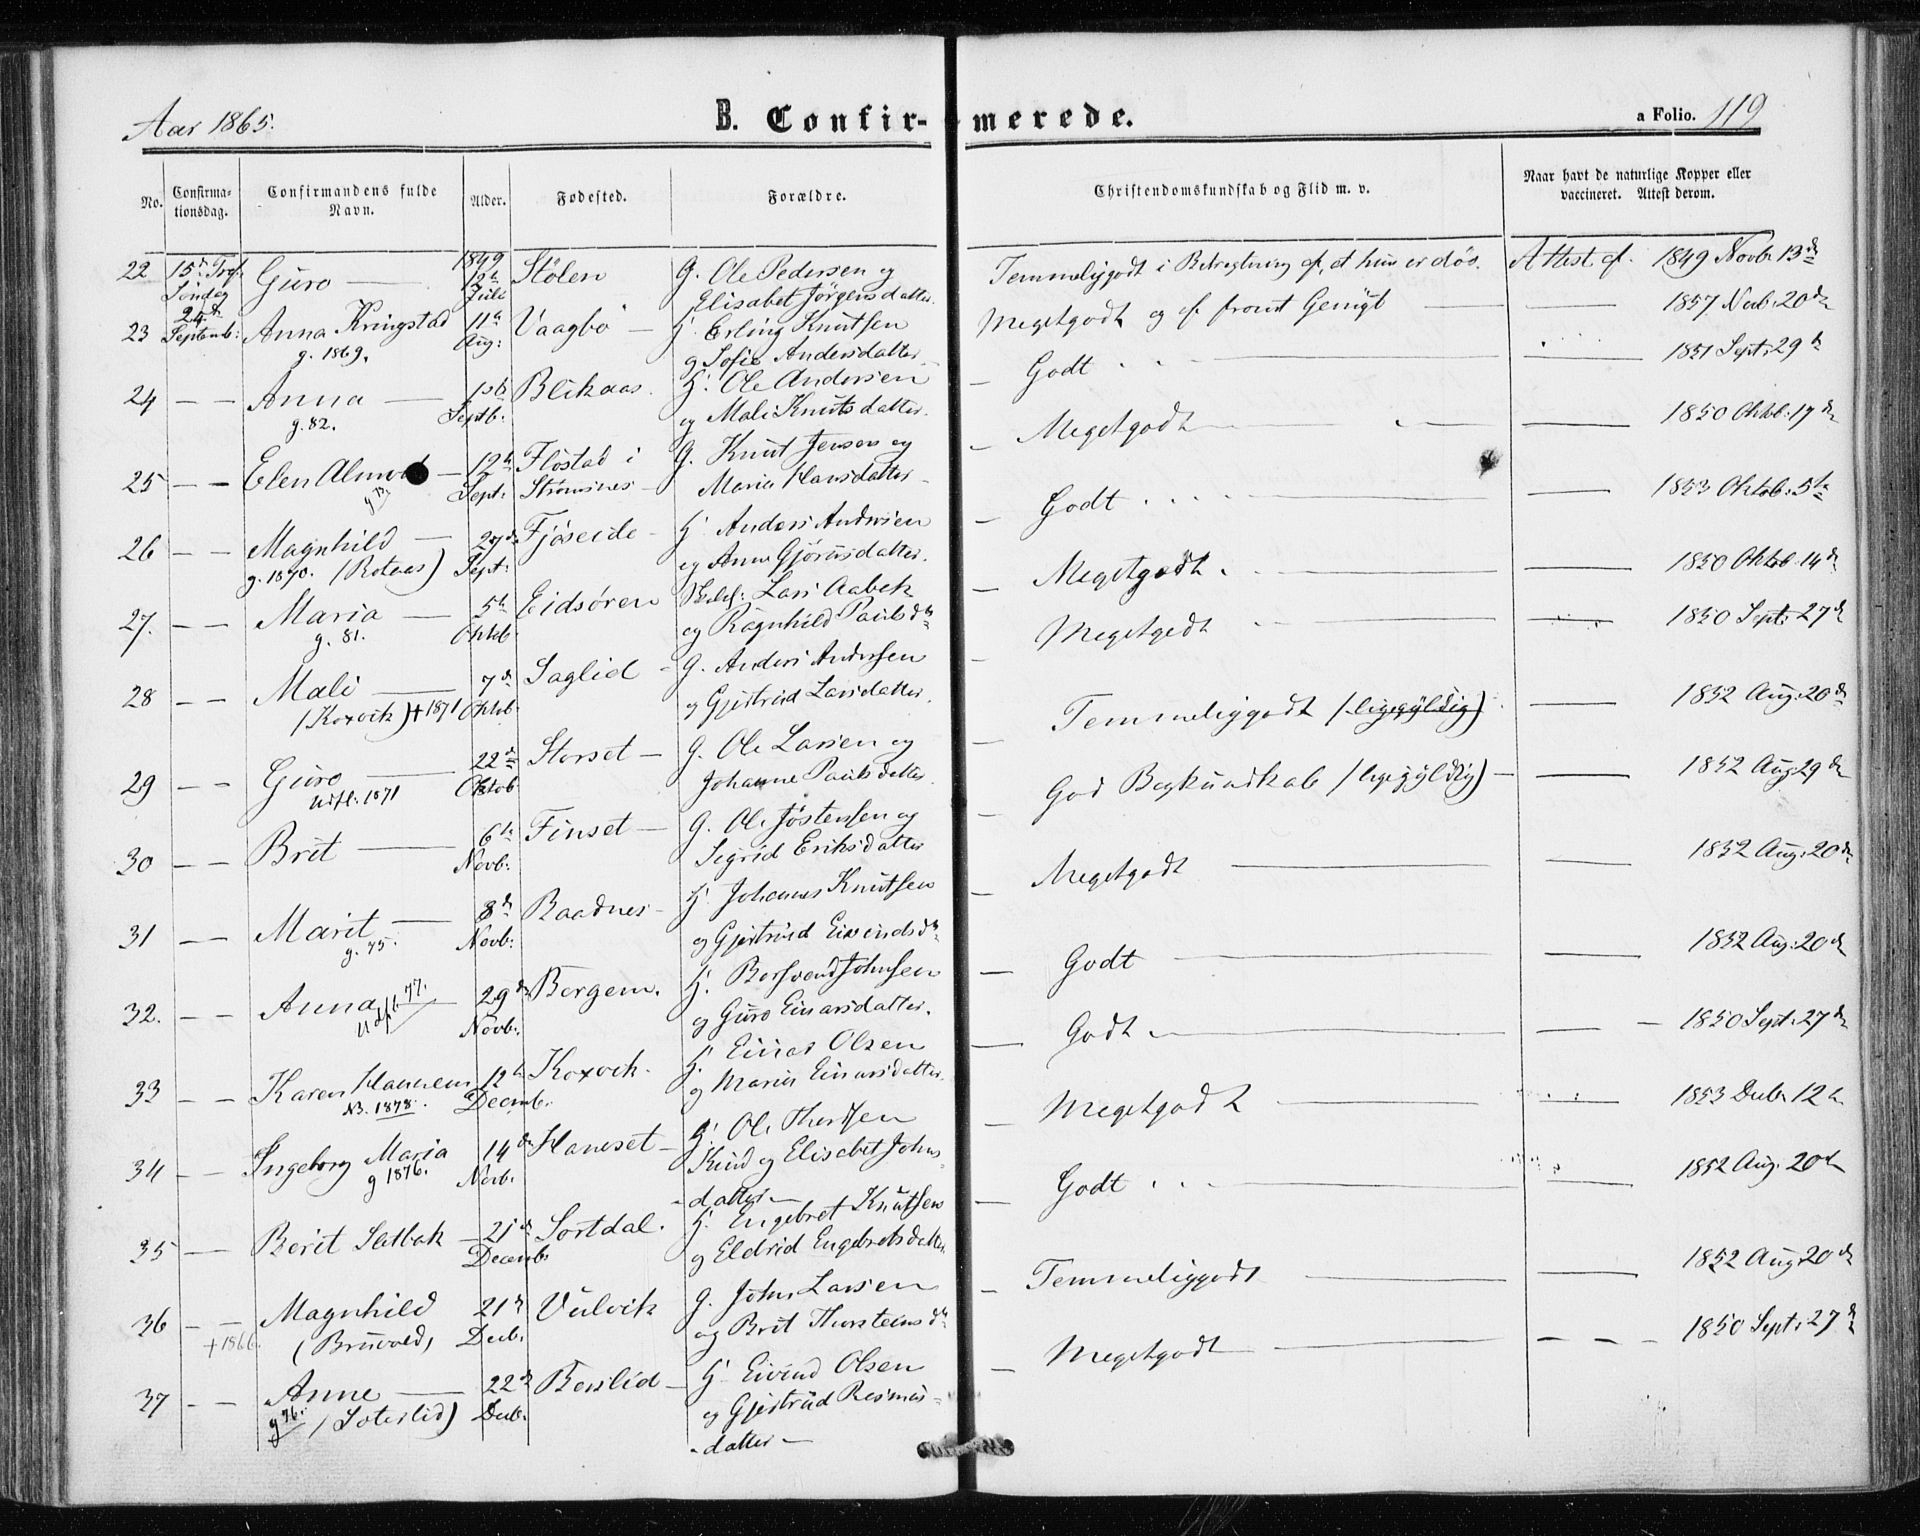 Aar 1865.
B. Confir- merede.
a Folio. 119
No.
Confirma-
tionsdag.
Confirmandens fulde
Navn.
Alder.
Fødested.
Forældre.
Christendomskundskab og Flid m. v.
Naar havt de naturlige Kopper eller
vaccineret. Attest derom.
22 Guro — 1849 12te Juli Stølen G. Ole Pedersen og
Elisabet Jørgensdatter.
Søndag 24de Septemb:
Temmeliggodt i Betragtning af, at hun er døv. Attest af. 1849 Novb. 13de
23 Anna Kringstad 11te Aug: Vaagbø — Erling Knutsen
g. 1869.
og Sofie Andersdatter
Megetgodt og — 1857 20de
24 — — Anna — Septb: Blikaas. Ole Andersen
g. 82.
og Mali Knutsdatter.
Godt — 1851 Sept: 29de
25 — — Elen 12te Sept: Flostad i Strømsnes — G. Knut Jensen og
Maria Hansdatter
Megetgodt — 1850 Oktb. 17de
26 — — Magnhild — 27de Sept: Fjøseide — Anders Andersen
g. 1870. (Rotaas)
og Anne Gjørusdatter.
Godt — 1853 Oktob. 5te
27. — — Maria — 5te Oktob. Eidsøren Lars Aabek
g. 81.
og Ragnhild Paulsdr
Megetgodt. — 1850 Oktob. 14de
28 — — Mali — 7de Oktob. Saglid — G. Anders Andersen
(Koxvik) + 1871
og Gjertrud Larsdatter.
Megetgodt — 1850 Sept: 27de
29 — — Guro — 22de Oktob. Storset — G. Ole Larsen og
Udfl: 1871
Johanne Paulsdatter.
Temmeliggodt (ligegyldig) — 1852 Aug: 20de
30 — — Brit — 6te Novb: Finset — G. Ole Jøstensen og
Sigrid Eriksdatter
God Begkundskab (ligegyldig) — 1852 Aug: 29de
31 — — Marit — 8de Novb: Baadnes — Johannes Knutsen
g. 75.
og Gjertrud Eivindsdr
Megetgodt — 1852 Aug: 20de
32. — — Anna — 29de Novb: Bergem. Johnsen
Udfl. 77.
og Guro Einarsdatter.
Godt — 1852 Aug: 20de
33 — — Karen Hammem 12te Decemb. Koxvik. Einar Olsen
1878.
og Marit Einarsdatter.
Godt — 1850 Sept. 27de
34 — — Ingeborg Maria 14de Novb. Haneset — Ole
g 1876.
og Elisabet Johns-
datter —
Megetgodt — 1853 Decb. 12te
35 — — Berit Satbak — 21de Decemb. Sortdal. Engebret Knutsen
og Eldrid Engebretsdatter
Godt — 1852 Aug. 20de
36 — — Magnhild 21de Decb. Vulvik G. John Larsen
+ 1866. (Bruvold)
og Brit Thorsteinsdr
Temmeliggodt — 1852 Aug. 20de
37 — — Anne — 22de Decb. Berslid — Eivind Olsen
g 76. (Soterlid)
og Gjertrud Rasmus-
datter —
Megetgodt — 1850 Sept: 27de